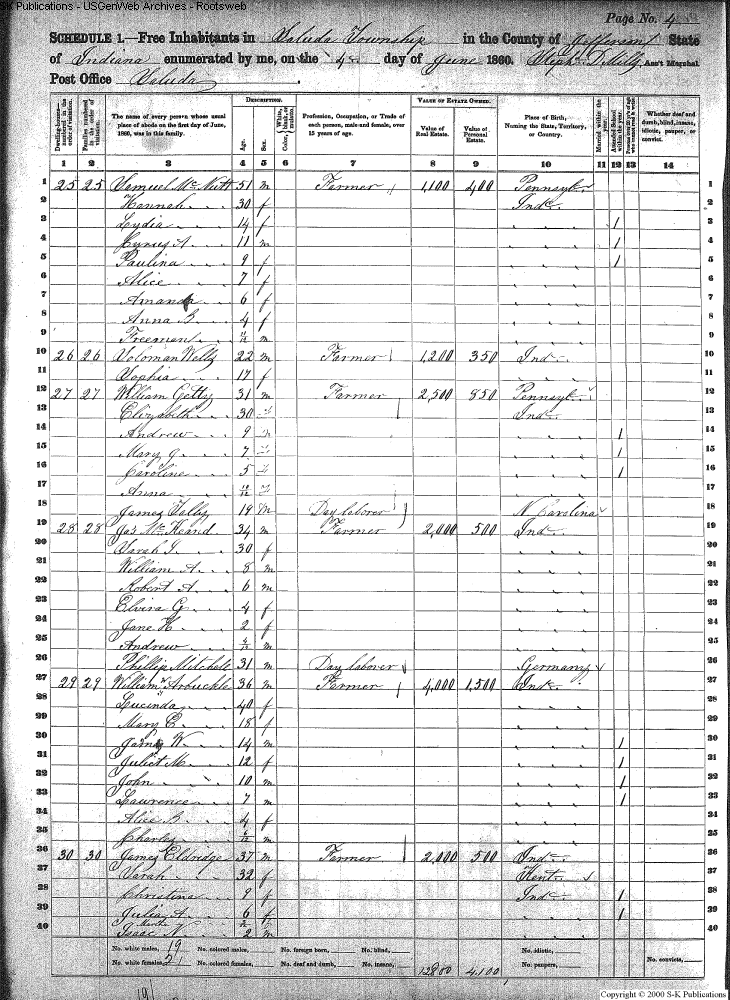 S-K Publications - USGenWeb Archives - Rootsweb
Page No. 4
SCHEDULE 1.—Free Inhabitants in Saluda Township in the County of Jefferson State
of Indiana enumerated by me, on the 4 day of June 1860. Ass't Marshal
Post Office Saluda.
DESCRIPTION. VALUE OF ESTATE OWNED.
Dwelling-houses—numbered in the order of visitation. Families numbered in the order of visitation. The name of every person whose usual place of abode on the first day of June, 1860, was in this family. Age. Sex. Color, White, black, or mulatto. Profession, Occupation, or Trade of each person, male and female, over 15 years of age. Value of Real Estate. Value of Personal Estate. Place of Birth, Naming the State, Territory, or Country. Married within the year. Attended School within the year. Whether deaf and dumb, blind, insane, idiotic, pauper, or convict.
1 2 3 4 5 6 7 8 9 10 11 12 13 14
1 25 25 Samuel McNutt 51 m Farmer 1,100 400 Pennsyl. 1
2 Hannah 30 f Ind. 2
3 Lydia 14 f 1 3
4 Cyrus A 11 m 1 4
5 Paulina 9 f 1 5
6 Alice 7 f 6
7 Amanda 6 f 7
8 Anna B 4 f 8
9 Freeman m 9
10 26 26 Soloman Wells 22 m Farmer 1,200 350 Ind. 10
11 Sophia 17 f 11
12 27 27 William Getty 31 m Farmer 2,500 850 Pennsyl. 12
13 Elizabeth 30 f Ind. 13
14 Andrew 9 m 1 14
15 Mary J. 7 f 1 15
16 Caroline 5 f 1 16
17 Anna f 17
18 James 19 m Day laborer N Carolina 18
19 28 28 Jas 34 m Farmer 2,000 500 Ind. 19
20 Sarah J. 30 f 20
21 William A. 8 m 21
22 Robert A. 6 m 22
23 Elvira G 4 f 23
24 Jane H. 2 f 24
25 Andrew m 25
26 Phillip Mitchell 31 m Day laborer Germany 26
27 29 29 William Arbuckle 36 m Farmer 4,000 1,500 Ind. 27
28 Lucinda 40 f 28
29 Mary E. 18 f 29
30 James W. 14 m 1 30
31 Juliet M. 12 f 1 31
32 John 10 m 1 32
33 Lawrence 7 m 1 33
34 Alice B. 4 f 34
35 Charles m 35
36 30 30 James Eldridge 37 m Farmer 2,000 500 Ind. 36
37 Sarah 32 f Kent. 37
38 Christina 9 f Ind. 1 38
39 Julia A. 6 f 1 39
Martha
40 Isaac N. 2 m 40
No. white males, 19 No. colored males, No. foreign born, No. blind, No. idiotic,
No. white females, 21 No. colored females, No. deaf and dumb, No. insane, 12800 4,100 No. paupers, No. convicts,
Copyright © 2000 S-K Publications